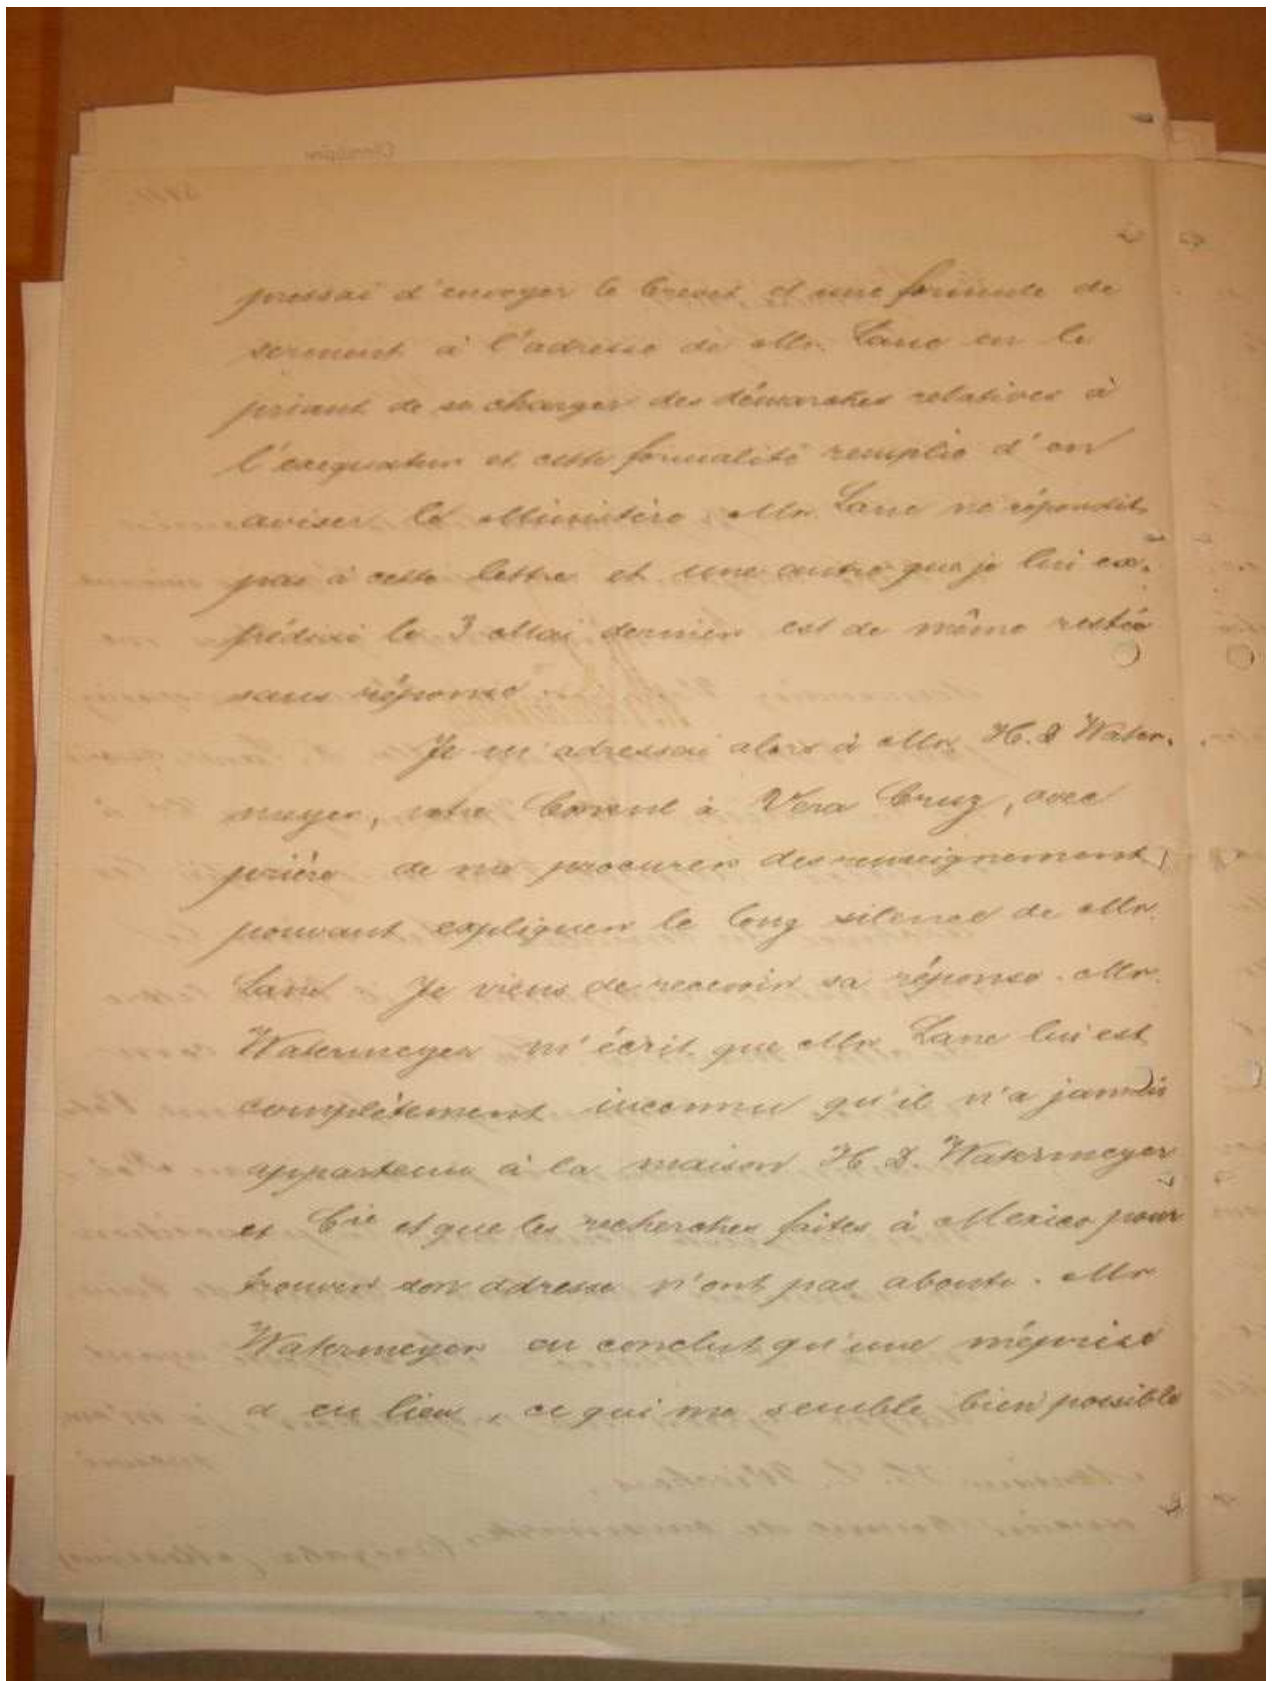 pressai d'envoyer le brevet et une formule de
serment à l'adresse de Mr. Lane en le
priant de se charger des démarches relatives à
l'exequatur et cette formalité remplie d'en
aviser le Ministère. Mr. Lane ne répondit
pas à cette lettre et une autre que je lui ex-
pédiai le 3 Mai dernier est de même restée
sans réponse
Je m'adressai alors à Mr. H. D Water-
meyer, notre Consul à Vera Cruz, avec
prière de me procurer des renseignements
pouvant expliquer le long silence de Mr.
Lane Je viens de recevoir sa réponse. Mr.
Watermeyer m'écrit que Mr. Lane lui est
complètement inconnu qu'il n'a jamais
appartenu à la maison H. D. Watermeyer
et Cie et que les recherches faites à Mexico pour
trouver son adresse n'ont pas abouti. Mr
Watermeyer en conclut qu'une méprise
a eu lieu, ce qui me semble bien possible